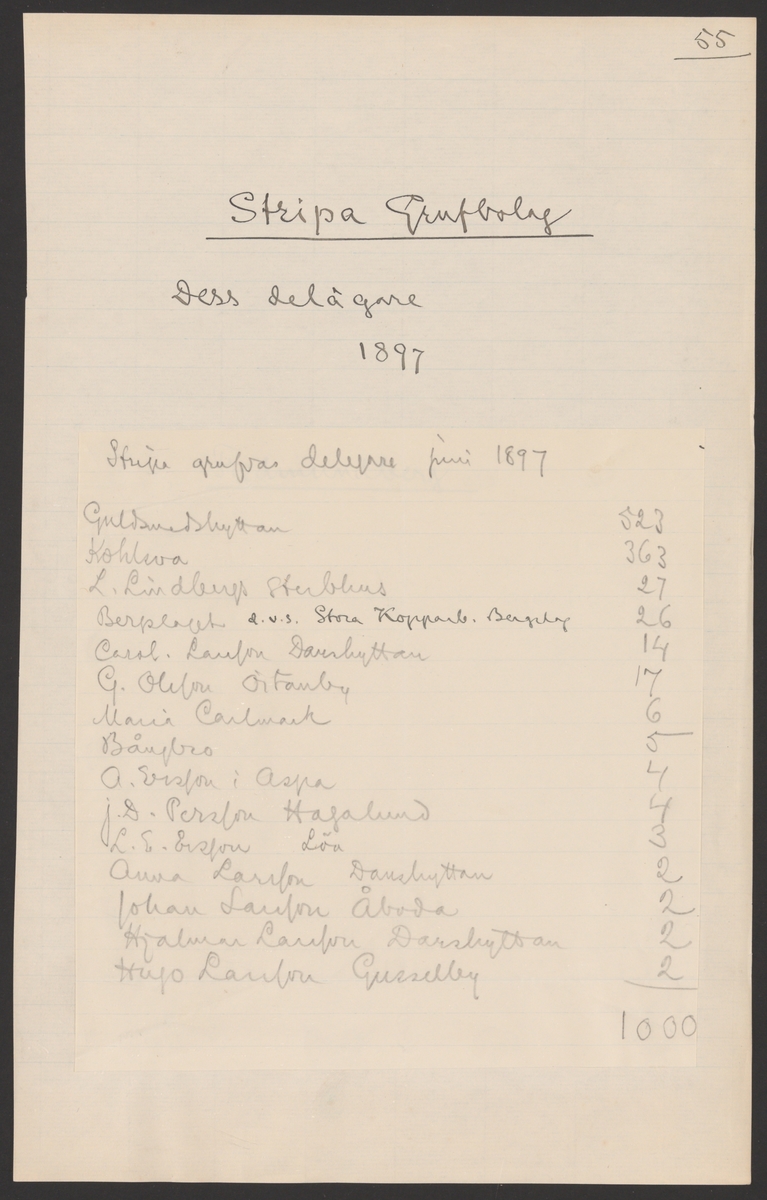 55
Stripa Grufbolag
Dess delägare
1897
Stripa grufvas delegare juni 1897
Guldsmedshyttan 523
Kohlsva 363
L. Lindbergs Sterbhus 27
Bergslaget d.v.s. Stora Kopparb. Bergslag 26
Carol. Larsson Danshyttan 14
G. Olsson Östanby 17
Maria Carlmark 6
Bångbro 5
A. Ersson i Aspa 4
J.D. Persson Hagalund 4
L. E. Ersson Löa 3
Anna Larsson Danshyttan 2
Johan Larsson Åboda 2
Hjalmar Larsson Danshyttan 2
Hugo Larsson Gusselby 2
1000